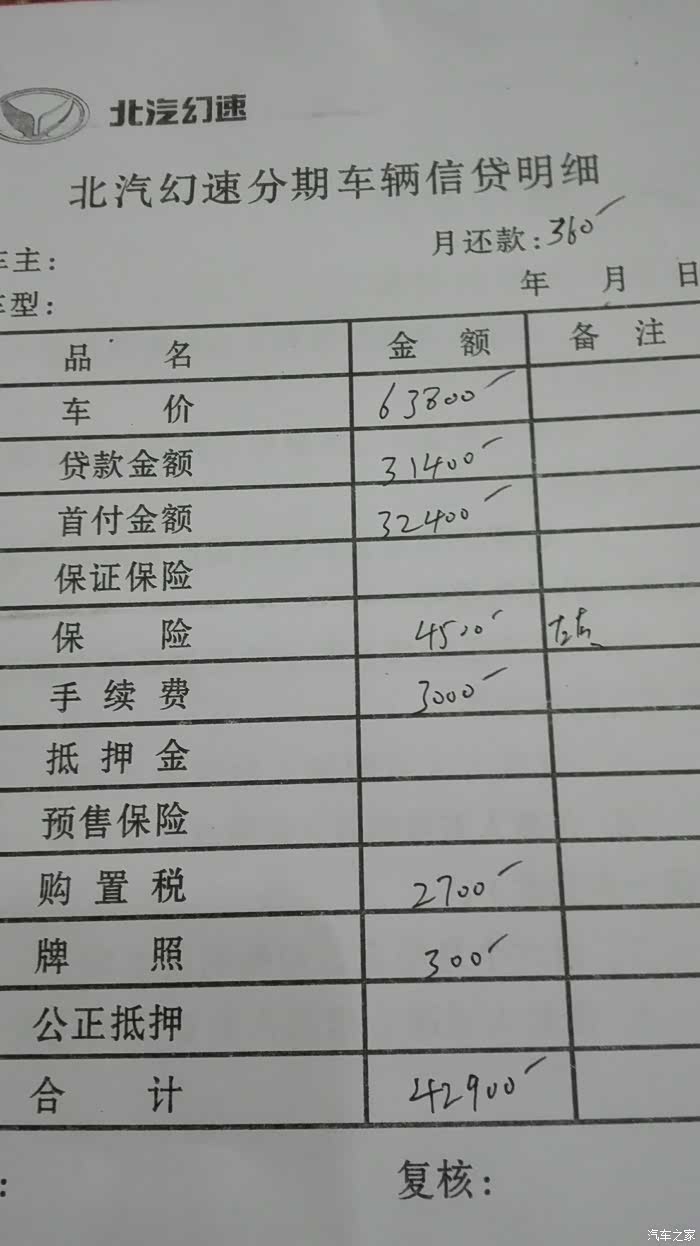 北汽幻速
北汽幻速分期车辆信贷明细
车主: 月还款:360
车型: 年 月 日
品 名 金 额 备 注
车 价 63800
贷款金额 31400
首付金额 32400
保证保险
保 险 4500
手 续 费 3000
抵 押 金
预售保险
购 置 税 2700
牌 照 300
公正抵押
合 计 42900
: 复核:
汽车之家